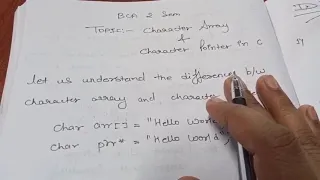 BCA 2 Sem
TOPIC:- Character Array
&
Character Pointer in C
let us understand the difference b/w
character array and
char arr[] = "Hello World
char ptr* = "Hello World"